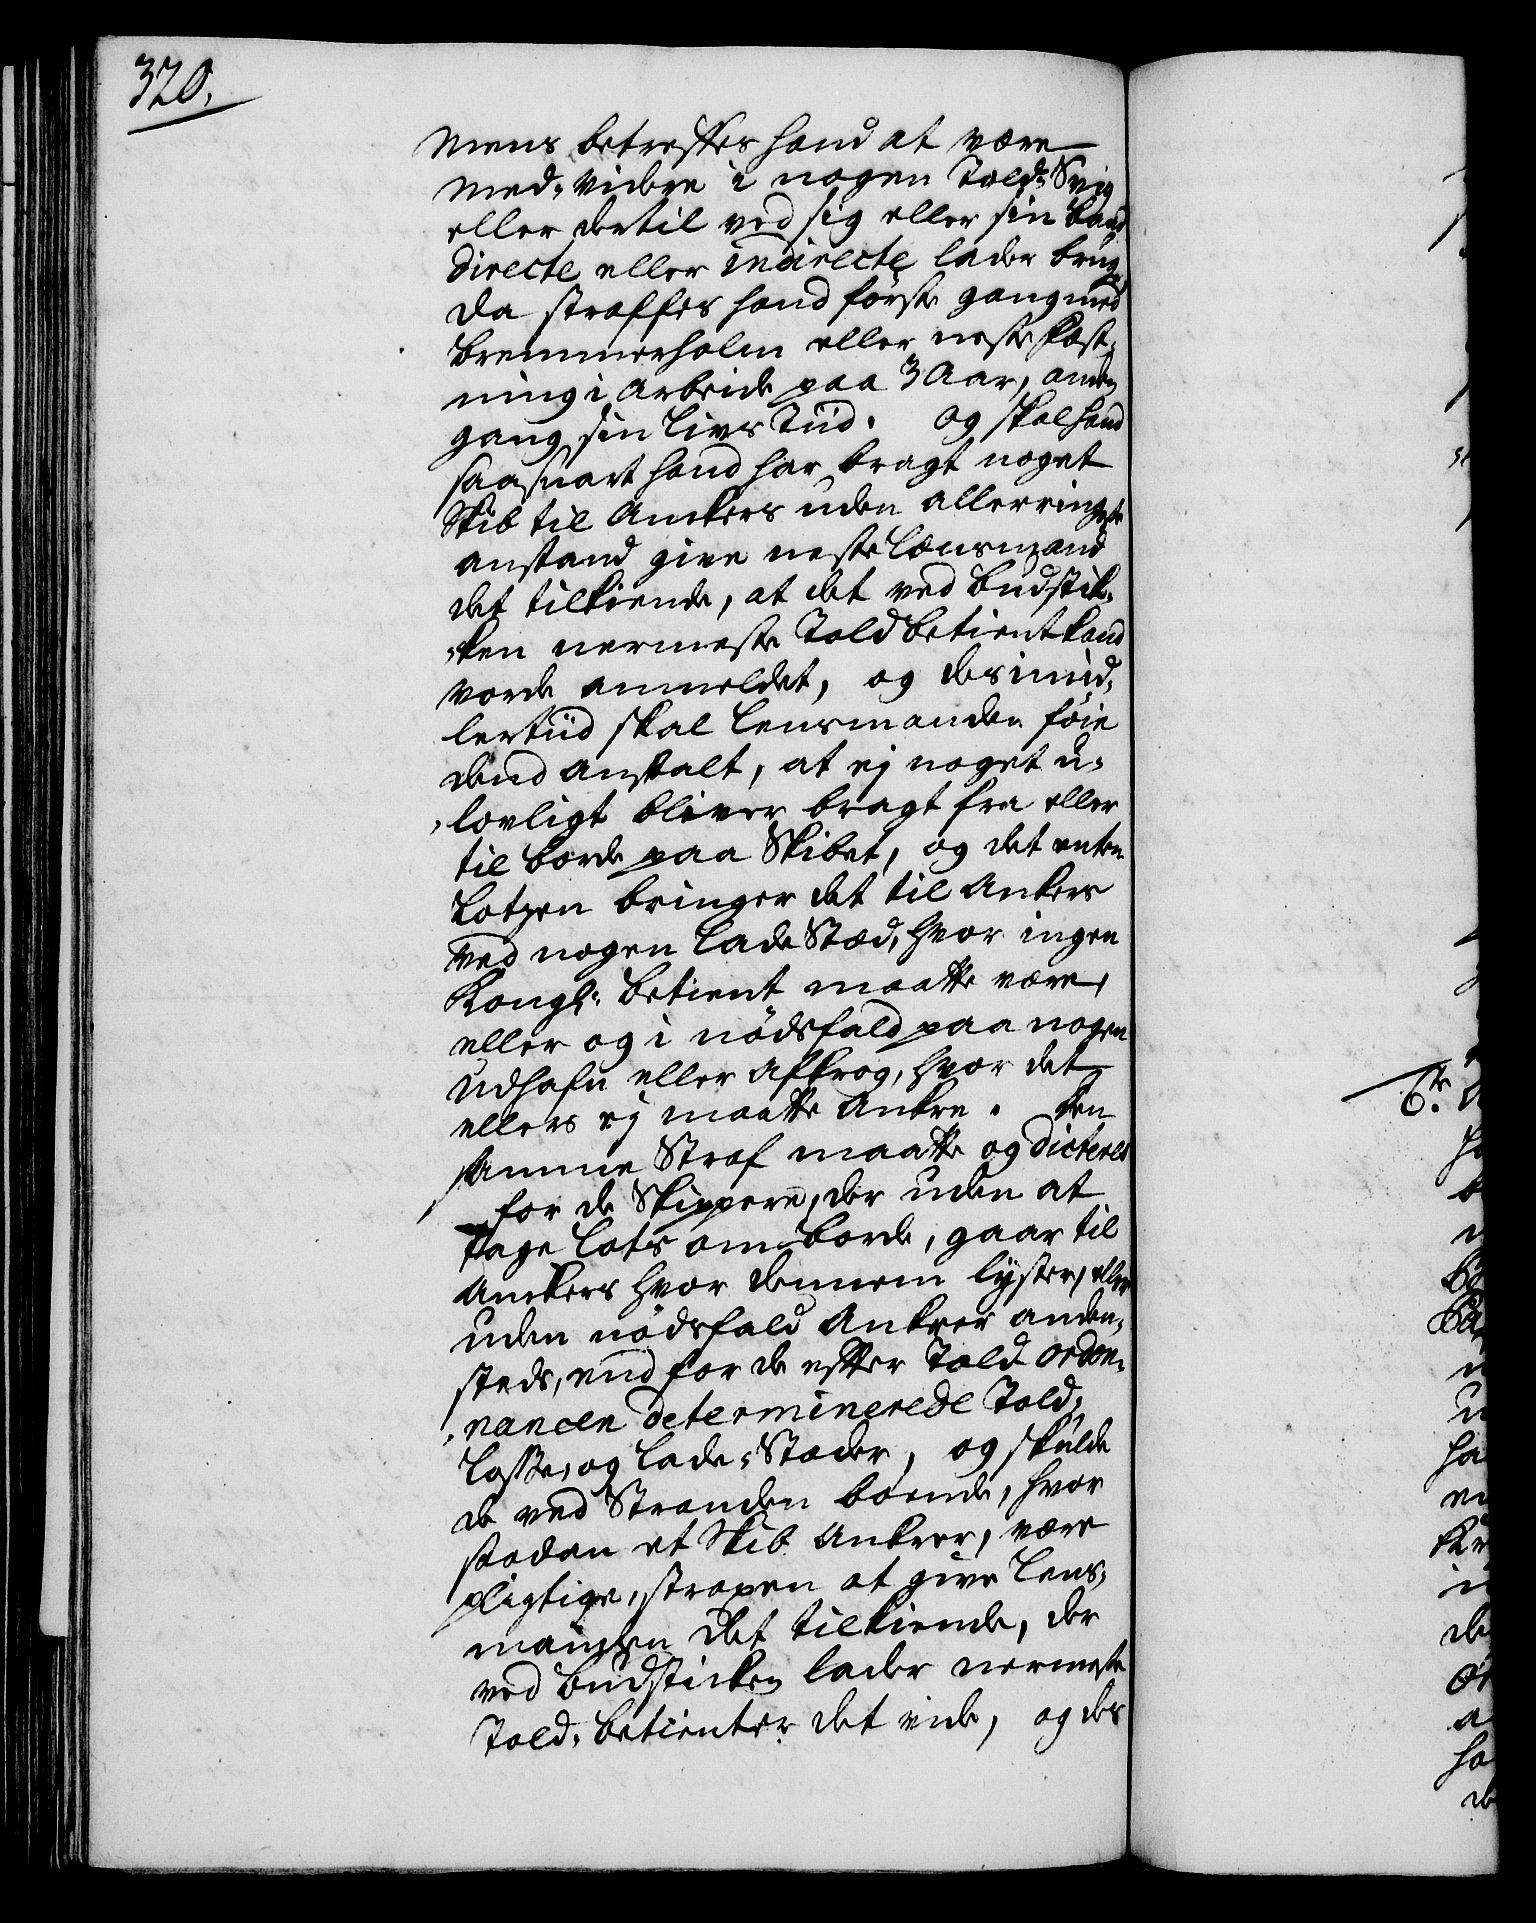 320.
mens betreffes hand at være
Med-Videre i nogen Told-Svig
eller dertil ved sig eller sin baad
directe eller indirecte lader bruge
da straffes hand første gang med
Bremmerholm eller neste Fæst-
ning i Arbeide paa 3 Aar, anden
gang sin Livs Tiid. Og skal hand
saasnart hand har bragt noget
Skib til Anckers uden allerringeste
anstand give neste Lænsmand
det tilkiende, at det ved Budstik-
ken nermeste Told betient kand
vorde anmeldet, og des imid-
lertiid skal Lensmanden føie
dend Anstalt, at ej noget u-
lovligt bliver bragt fra eller
til borde paa Skibet, og det enten
Lotzen bringer det til Ankers
ved nogen Lade Stæd, hvor ingen
Kongl: betient maatte være,
eller og i nødsfald paa nogen
Udhafn eller Afkrog, hvor det
ellers ej maatte Ankre. Den
samme Straf maatte og dicteres
for de Skippere, der uden at
tage Lots om borde, gaar til
Anckers hvor dennem lyster, eller
uden nødsfald Ankrer anden-
steds, end for de efter Told ordon-
nancen determinerede Told,
Losse, og Lade-Stæder, og skulde
de ved Stranden boende, hvor
saadan et Skib Ankrer, være
pligtige, strapen at give Lens-
manden det tilkiende, der
ved budsticken lader nermeste
Told-betienter det vide, og des
6te